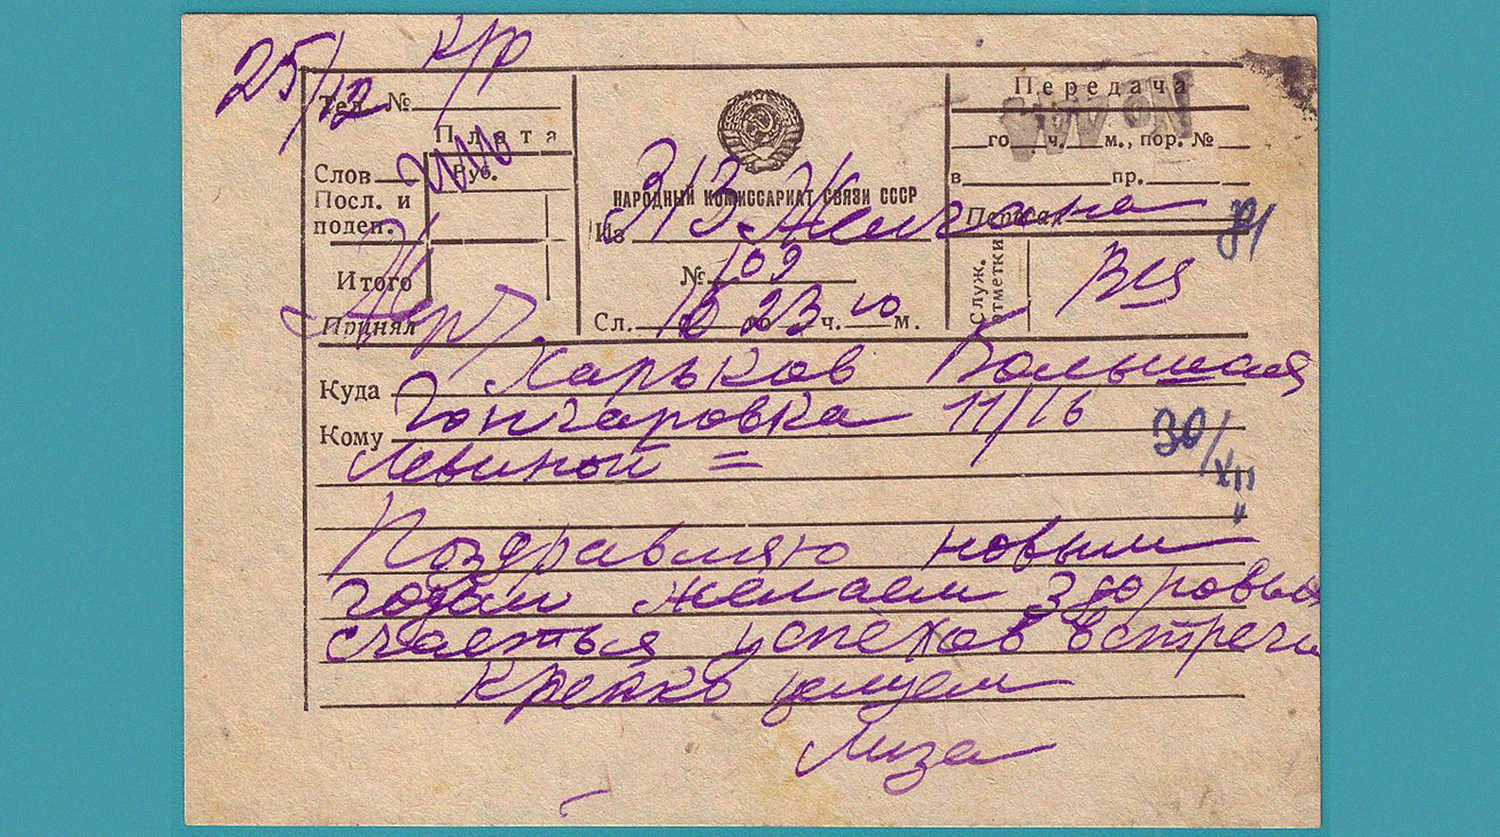 25/12 к/р
Тел. №
Плата
Слов Руб.
Посл. и
подеп.
Итого
Принял
НАРОДНЫЙ КОМИССАРИАТ СВЯЗИ СССР
Из 313
№ 109
Сл. 16 го 23 ч. 10 м.
Передача
го ч. м., пор. №
в пр.
Передал
Служ. отметки
Куда Харьков Большая
Кому Гончаровка 11/16
Левиной =
30/XII
Поздравляю новым
годом желаем здоровья
счастья успехов встречи
крепко целуем
Лиза